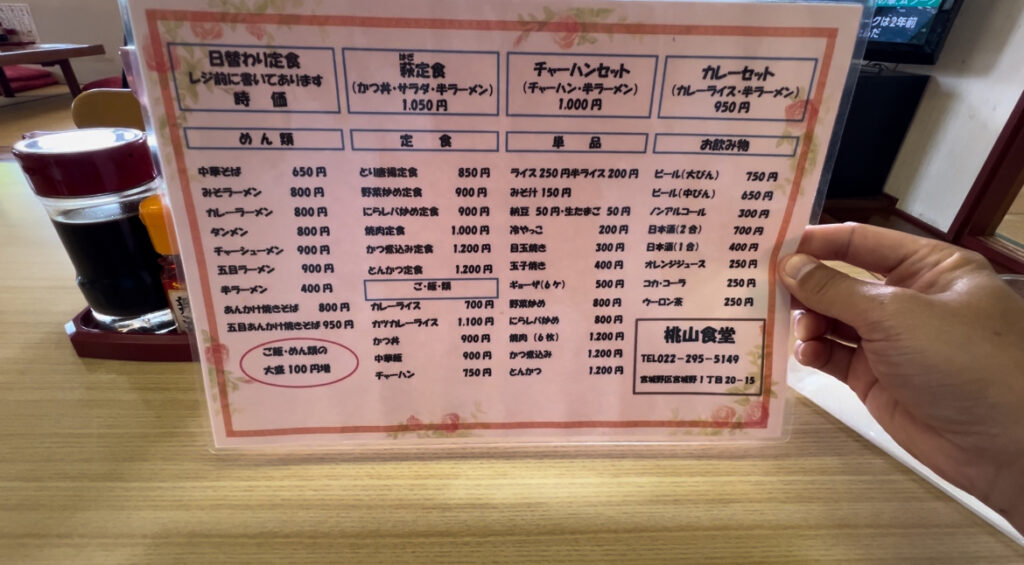 日替わり定食
レジ前に書いてあります
時 価
はぎ
萩定食
(かつ丼・サラダ・半ラーメン)
1.050円
チャーハンセット
(チャーハン・半ラーメン)
1.000円
カレーセット
(カレーライス・半ラーメン)
950円
めん類
中華そば 650円
みそラーメン 800円
カレーラーメン 800円
タンメン 800円
チャーシューメン 900円
五目ラーメン 900円
半ラーメン 400円
あんかけ焼きそば 800円
五目あんかけ焼きそば 950円
ご飯・めん類の
大盛100円増
定 食
とり唐揚定食 850円
野菜炒め定食 900円
にらレバ炒め定食 900円
焼肉定食 1.000円
かつ煮込み定食 1.200円
とんかつ定食 1.200円
ご・飯・類
カレーライス 700円
カツカレーライス 1.100円
かつ丼 900円
中華飯 900円
チャーハン 750円
単 品
ライス250円半ライス200円
みそ汁150円
納豆 50円・生たまご 50円
冷やっこ 200円
目玉焼き 300円
玉子焼き 400円
ギョーザ(6ケ) 500円
野菜炒め 800円
にらレバ炒め 800円
焼肉(6枚) 1.200円
かつ煮込み 1.200円
とんかつ 1.200円
お飲み物
ビール(大びん) 750円
ビール(中びん) 650円
ノンアルコール 300円
日本酒(2合) 700円
日本酒(1合) 400円
オレンジジュース 250円
コカ・コーラ 250円
ウーロン茶 250円
桃山食堂
TEL022-295-5149
宮城野区宮城野1丁目20-15
クは2年前